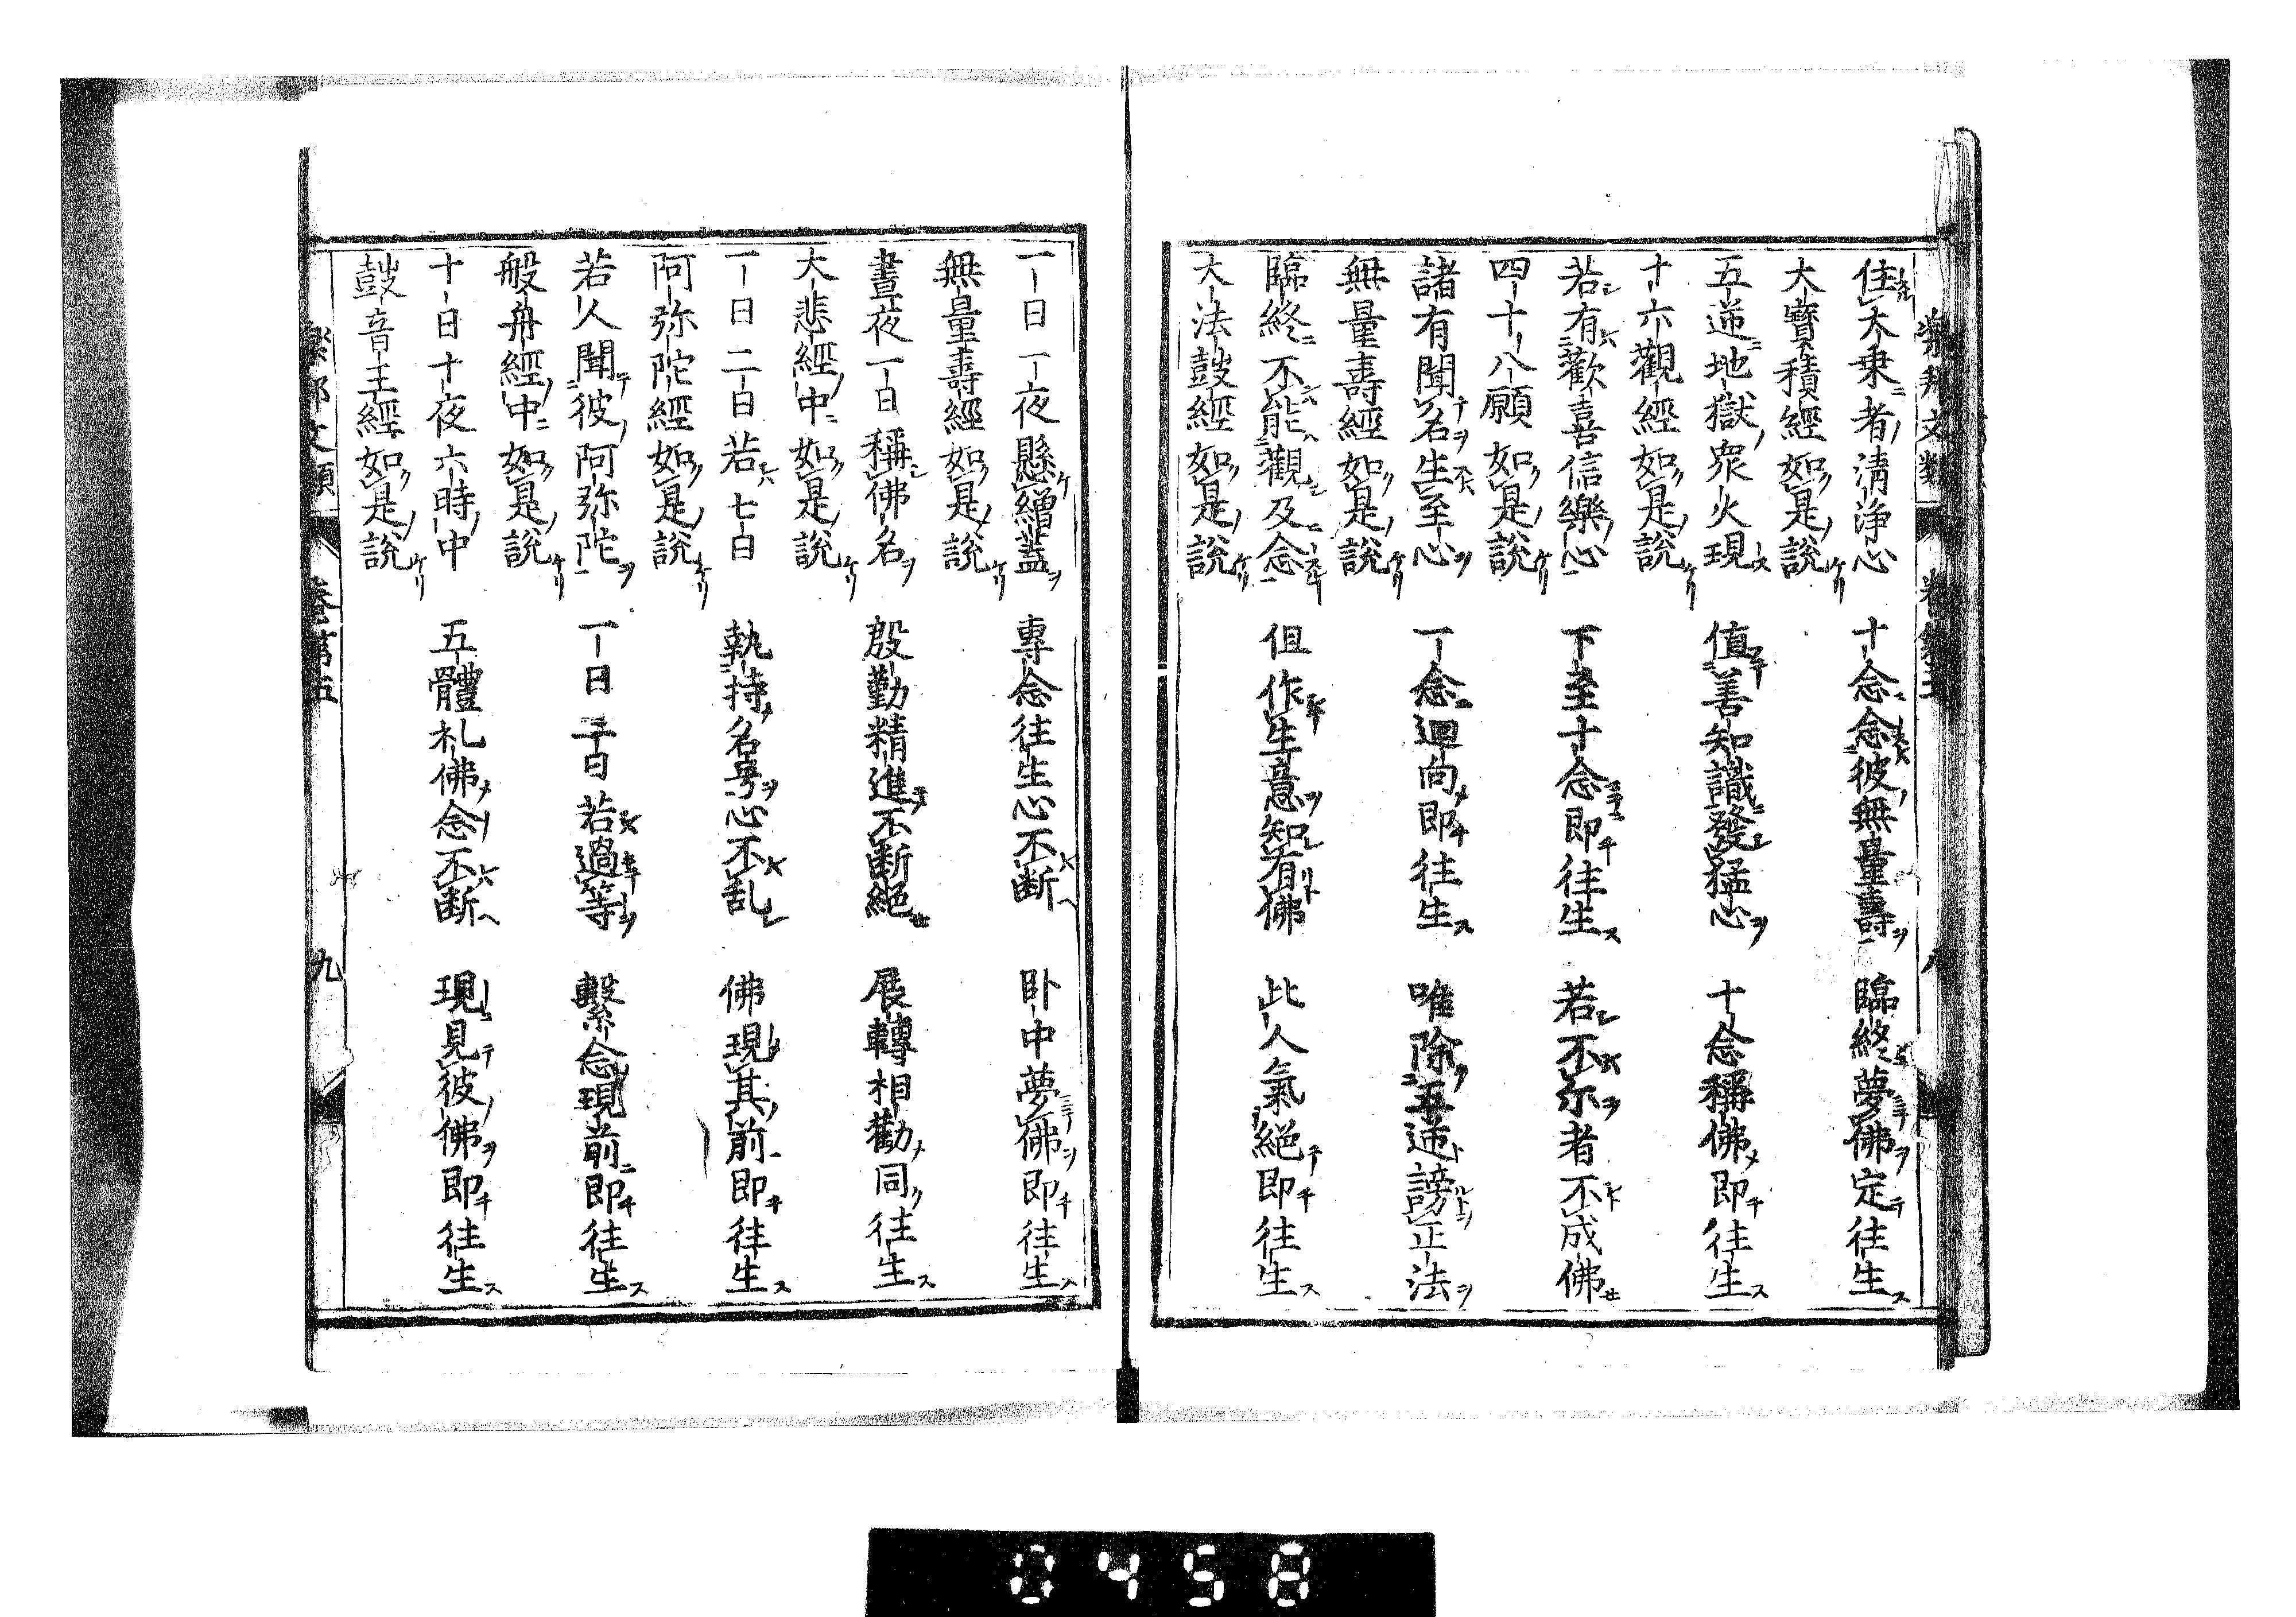 住大乗者清浄心　十念念彼無量壽　臨終夢佛定往生
大寶積經如是說
五逆地獄衆火現　值善知識發猛心　十念稱佛即往生
十六觀經如是說
若有歡喜信樂心　下至十念即往生　若不尓者不成佛
四十八願如是說
諸有聞名生至心　一念迴向即往生　唯除五逆謗正法
無量壽經如是說
臨終不能觀及念　但作生意知有佛　此人氣絕即往生
大法鼓經如是說
一日一夜懸繒蓋　專念往生心不断　卧中夢佛即往生
無量壽經如是說
晝夜一日稱佛名　殷勤精進不断絕　展轉相勸同往生
大悲經中如是說
一日二日若七日　執持名号心不乱　佛現其前即往生
阿弥陀經如是說
若人聞彼阿弥陀　一日二日若過等　繫念現前即往生
般舟經中如是說
十日十夜六時中　五體礼佛念不断　現見彼佛即往生
鼓音王經如是說
樂邦文類　卷第五　九
0458